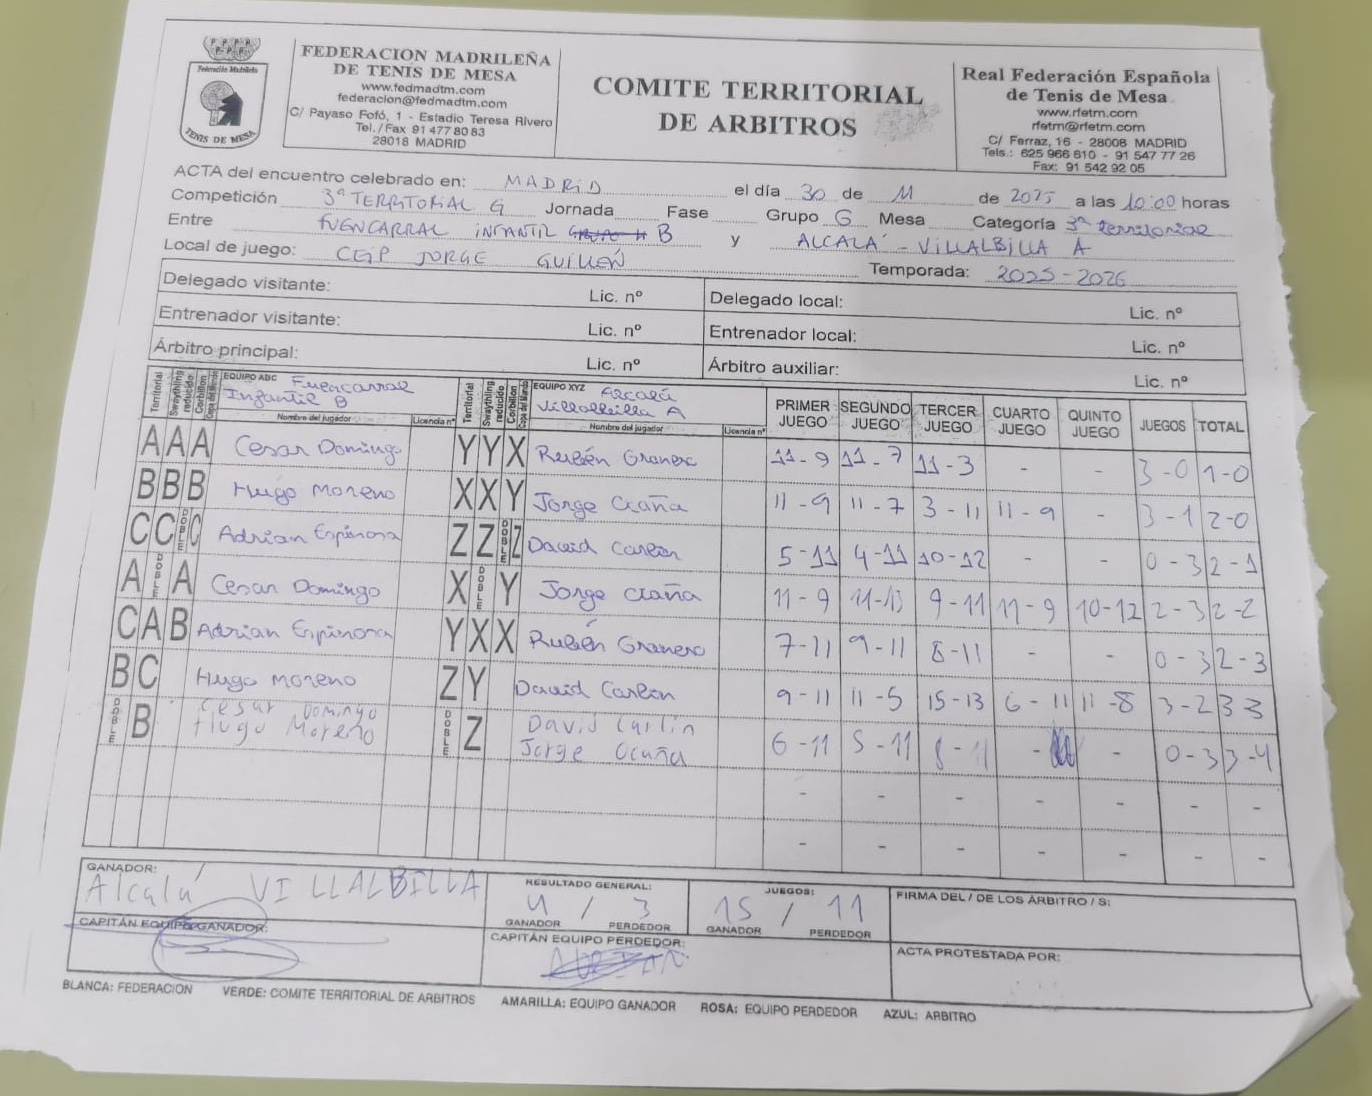 Federación Madrileña
TENIS DE MESA
FEDERACION MADRILEÑA
DE TENIS DE MESA
www.fedmadtm.com
federacion@fedmadtm.com
C/ Payaso Fofó, 1 - Estadio Teresa Rivero
Tel./Fax 91 477 80 83
28018 MADRID
COMITE TERRITORIAL
DE ARBITROS
Real Federación Española
de Tenis de Mesa
www.rfetm.com
rfetm@rfetm.com
C/ Ferraz, 16 - 28008 MADRID
Tels.: 625 966 610 - 91 547 77 26
Fax: 91 542 92 05
ACTA del encuentro celebrado en: MADRID el día 30 de 11 de 2025 a las 10:00 horas
Competición 3ª TERRITORIAL G Jornada Fase Grupo G Mesa Categoría 3ª territorial
Entre FUENCARRAL INFANTIL B y ALCALÁ - VILLALBILLA A
Local de juego: CEIP JORGE GUILLÉN Temporada: 2025-2026
Delegado visitante: Lic. nº Delegado local: Lic. nº
Entrenador visitante: Lic. nº Entrenador local: Lic. nº
Árbitro principal: Lic. nº Árbitro auxiliar: Lic. nº
Territorial Swaythling reducido Corbillon Copa del Mundo EQUIPO ABC Fuencarral Infantil B Nombre del jugador Licencia nº Territorial Swaythling reducido Corbillon Copa del Mundo EQUIPO XYZ Alcalá Villalbilla A Nombre del jugador Licencia nº PRIMER JUEGO SEGUNDO JUEGO TERCER JUEGO CUARTO JUEGO QUINTO JUEGO JUEGOS TOTAL
A A A Cesar Domingo Y Y X Rubén Granero 11-9 11-7 11-3 - - 3-0 1-0
B B B Hugo Moreno X X Y Jorge Ocaña 11-9 11-7 3-11 11-9 - 3-1 2-0
C C DOBLE C Adrian Espinosa Z Z DOBLE Z David Carlin 5-11 4-11 10-12 - - 0-3 2-1
A DOBLE A Cesar Domingo X DOBLE Y Jorge Ocaña 11-9 11-13 9-11 11-9 10-12 2-3 2-2
C A B Adrian Espinosa Y X X Rubén Granero 7-11 9-11 8-11 - - 0-3 2-3
B C Hugo Moreno Z Y David Carlin 9-11 11-5 15-13 6-11 11-8 3-2 3 3
DOBLE B Cesar Domingo Hugo Moreno DOBLE Z David Carlin Jorge Ocaña 6-11 5-11 8-11 - - 0-3 3-4
- - - - - - -
- - - - - - -
GANADOR: Alcalá VILLALBILLA RESULTADO GENERAL: 4 / 3 GANADOR PERDEDOR JUEGOS: 15 / 11 GANADOR PERDEDOR FIRMA DEL / DE LOS ÁRBITRO / S:
CAPITÁN EQUIPO GANADOR: CAPITÁN EQUIPO PERDEDOR: ACTA PROTESTADA POR:
BLANCA: FEDERACION VERDE: COMITE TERRITORIAL DE ARBITROS AMARILLA: EQUIPO GANADOR ROSA: EQUIPO PERDEDOR AZUL: ARBITRO